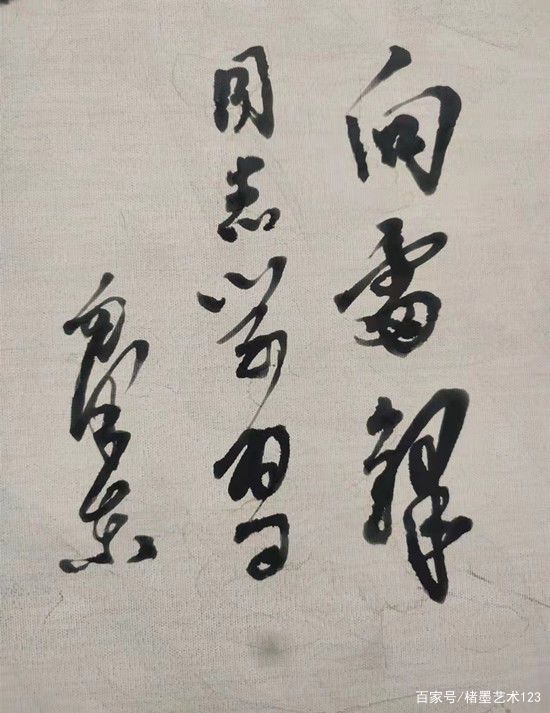 向雷锋
同志学习
毛泽东
百家号/楮墨艺术123